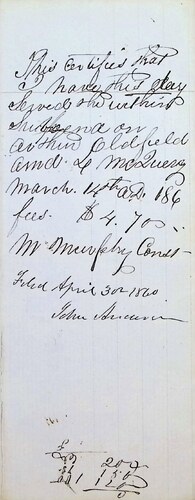 This certifies that
I have this day
Served the within
Subpena on
Arthur Oldfield
and L McQuery
March. 14th AD. 186
fees. $4.70
W. Murphy Const
Filed April 30th 1860
John
200
150